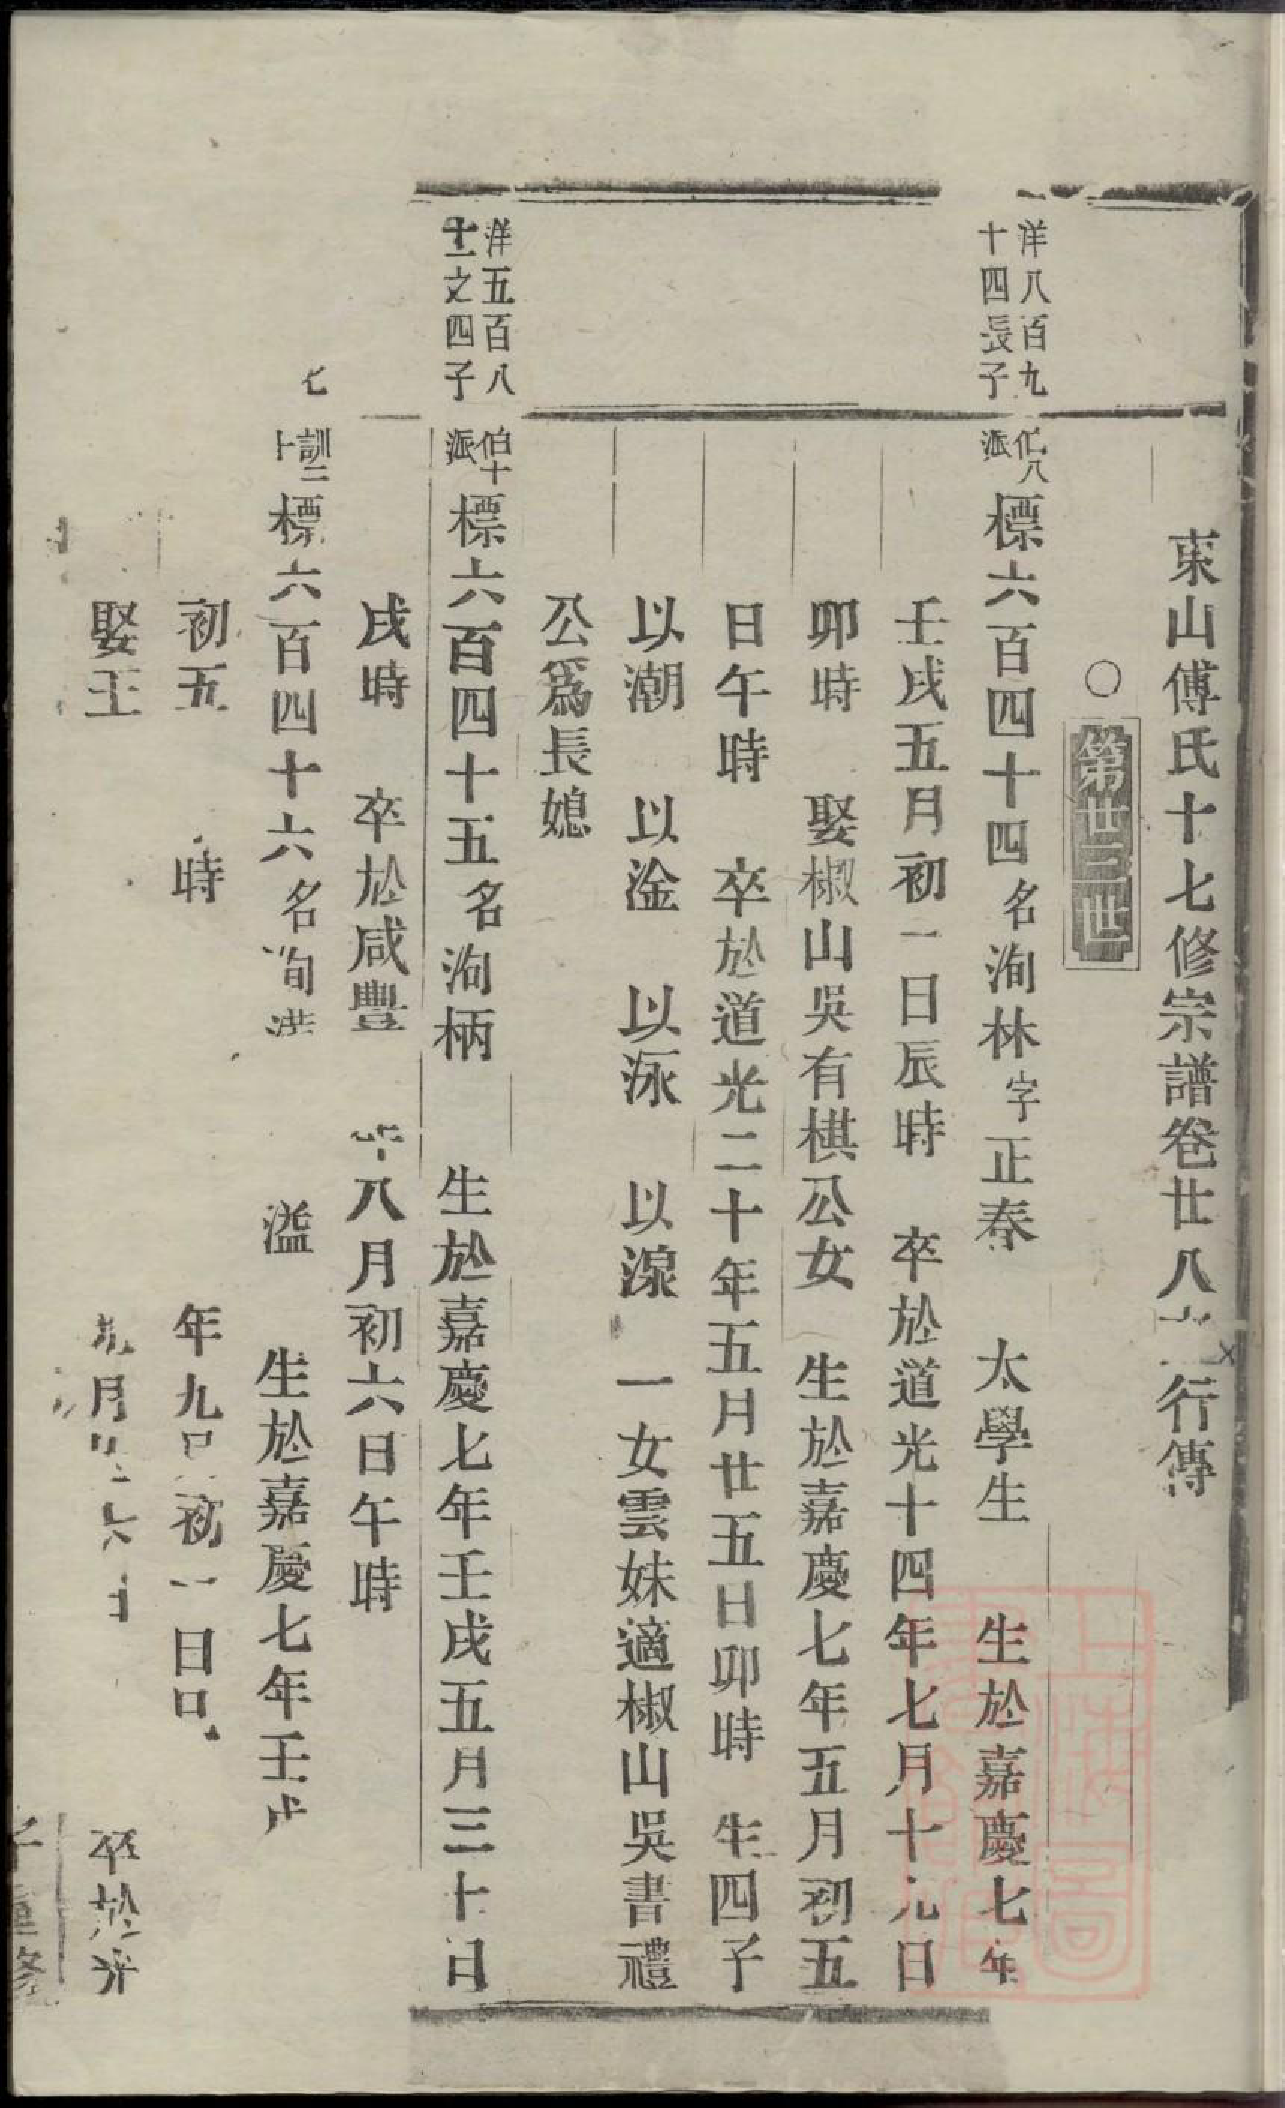 東山傅氏十七修宗譜卷廿八 行傳
○第卅三世
洋八百九
十四長子
派
標六百四十四名洵林字正春 太學生 生於嘉慶七年
壬戌五月初一日辰時 卒於道光十四年七月十九日
卯時 娶椒山吳有棋公女 生於嘉慶七年五月初五
日午時 卒於道光二十年五月廿五日卯時 生四子
以潮 以淦 以泳 以湶 一女雲妹適椒山吳書禮
公爲長媳
洋五百八
十一之四子
伯十
派
標六百四十五名洵柄 生於嘉慶七年壬戌五月三十日
戌時 卒於咸豐 八月初六日午時
七
訓二
標六百四十六名洵洪 溢 生於嘉慶七年壬戌
初五 時 年九 初一日
娶王 月 日 卒於
重修
上海圖書館藏